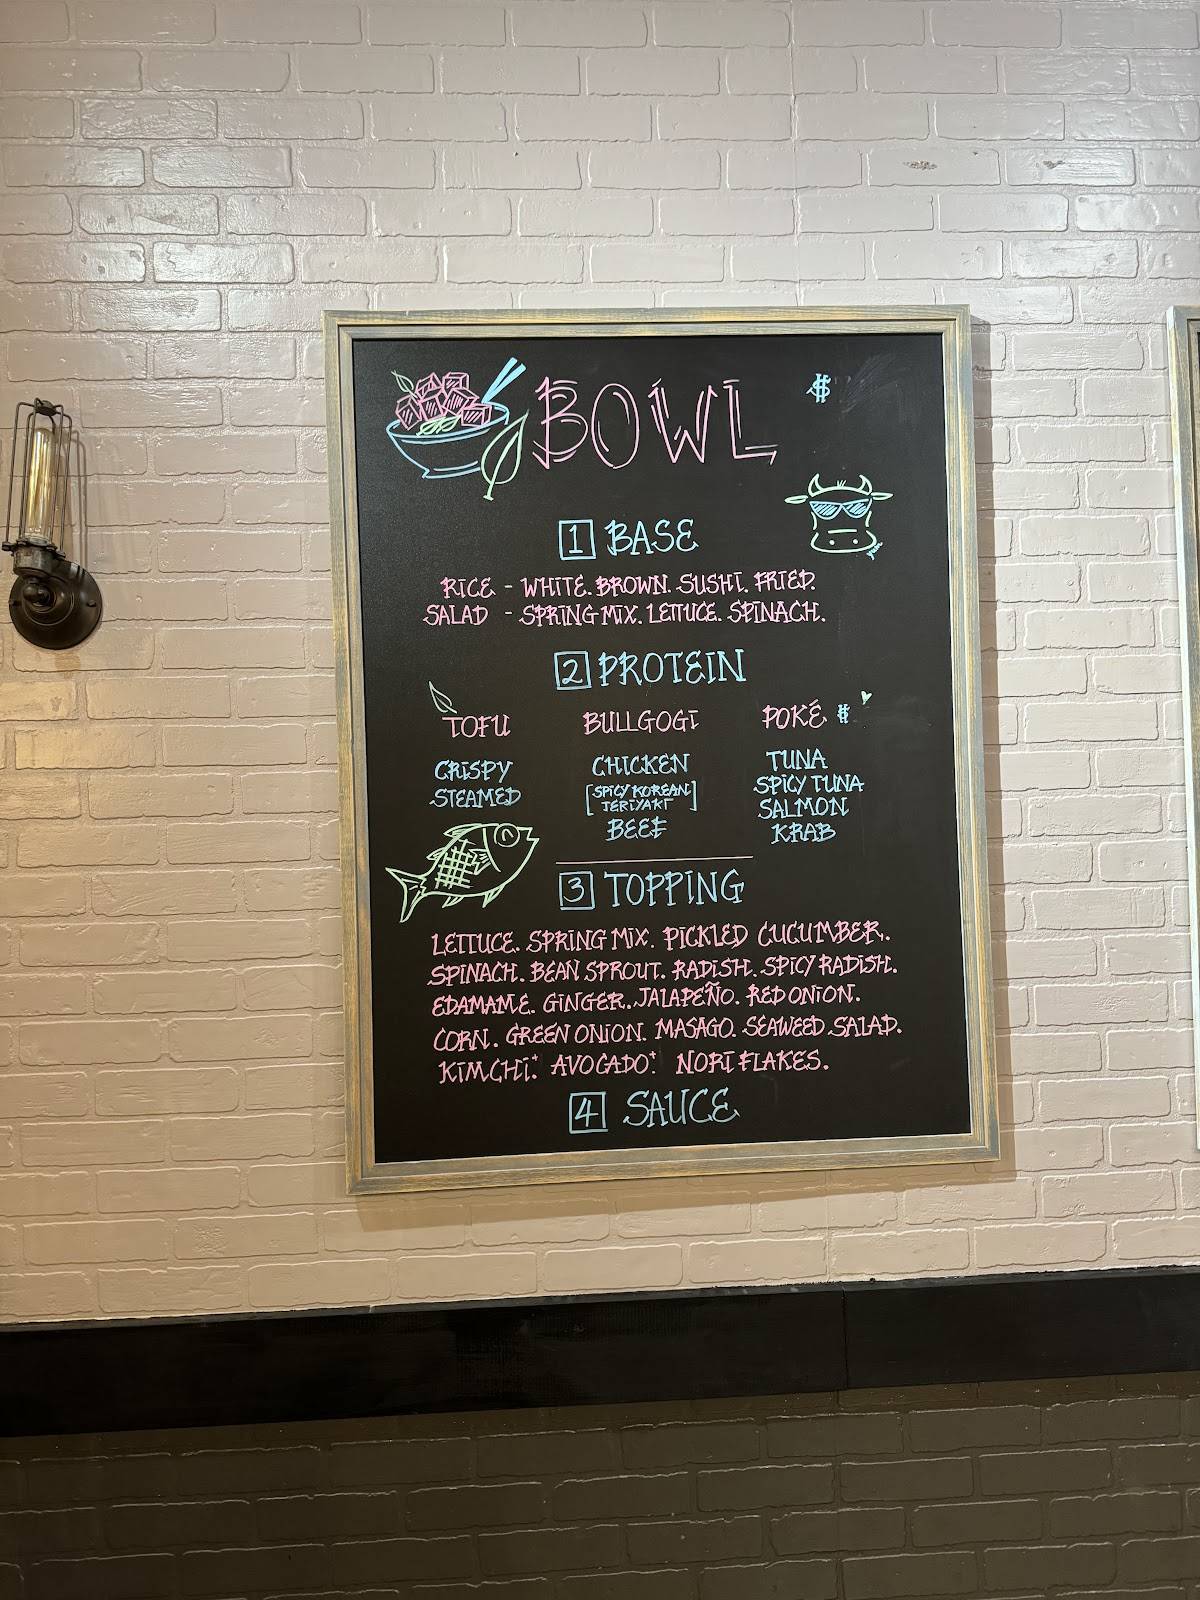 BOWL $
1 BASE
RICE - WHITE. BROWN. SUSHI. FRIED.
SALAD - SPRING MIX. LETTUCE. SPINACH.
2 PROTEIN
TOFU BULLGOGI POKÉ $
CRISPY CHICKEN TUNA
STEAMED [SPICY KOREAN SPICY TUNA
TERIYAKI] SALMON
BEEF KRAB
3 TOPPING
LETTUCE. SPRING MIX. PICKLED CUCUMBER.
SPINACH. BEAN SPROUT. RADISH. SPICY RADISH.
EDAMAME. GINGER. JALAPEÑO. RED ONION.
CORN. GREEN ONION. MASAGO. SEAWEED SALAD.
KIMCHI+. AVOCADO+. NORI FLAKES.
4 SAUCE